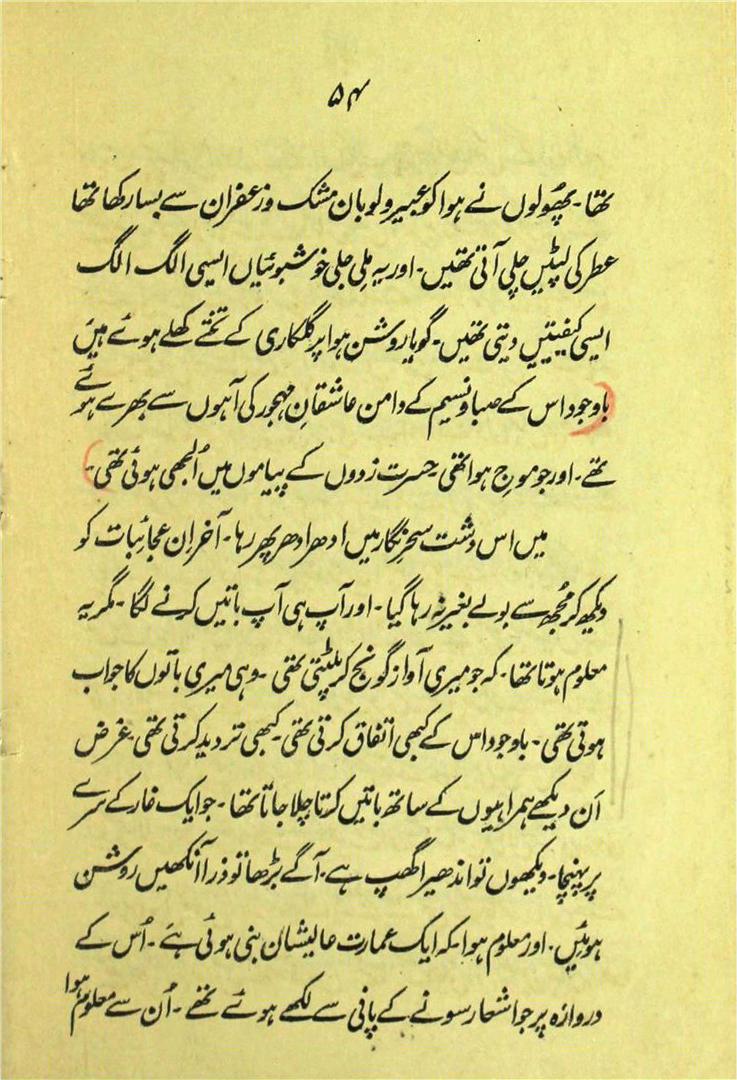 ۵۴
تھا۔ پھُولوں نے ہوا کو عبیر و لوبان مشک و زعفران سے بسا رکھا تھا
عطر کی لپٹیں چلی آتی تھیں۔ اور یہ مِلی جلی خوشبوئیاں ایسی الگ الگ
ایسی کیفیتیں دیتی تھیں۔ گویا روشنِ ہوا پر گلکاری کے تختے کھلے ہوئے ہیں
باوجود اس کے صبا و نسیم کے دامن عاشقانِ مہجور کی آہوں سے بھرے ہوئے
تھے۔ اور جو موجِ ہوا تھی۔ حسرت زدوں کے پیاموں میں اُلجھی ہوئی تھی۔
میں اس دشت سحر نگار میں ادھر ادھر پھر رہا۔ آخر اِن عجائبات کو
دیکھ کر مُجھ سے بولے بغیر نہ رہا گیا۔ اور آپ ہی آپ باتیں کرنے لگا۔ مگر یہ
معلوم ہوتا تھا۔ کہ جو میری آواز گونج کر پلٹتی تھی۔ وہی میری باتوں کا جواب
ہوتی تھی۔ باوجود اس کے کبھی اتفاق کرتی تھی۔ کبھی تردید کرتی تھی۔ غرض
اَن دیکھے ہمراہیوں کے ساتھ باتیں کرتا چلا جاتا تھا۔ جو ایک غار کے سرے
پر پہنچا۔ دیکھوں تو اندھیرا گھپ ہے۔ آگے بڑھا تو ذرا آنکھیں روشن
ہوئیں۔ اور معلوم ہوا۔ کہ ایک عمارت عالیشان بنی ہوئی ہے۔ اُس کے
دروازہ پر جو اشعار سونے کے پانی سے لکھے ہوئے تھے۔ اُن سے معلوم ہوا